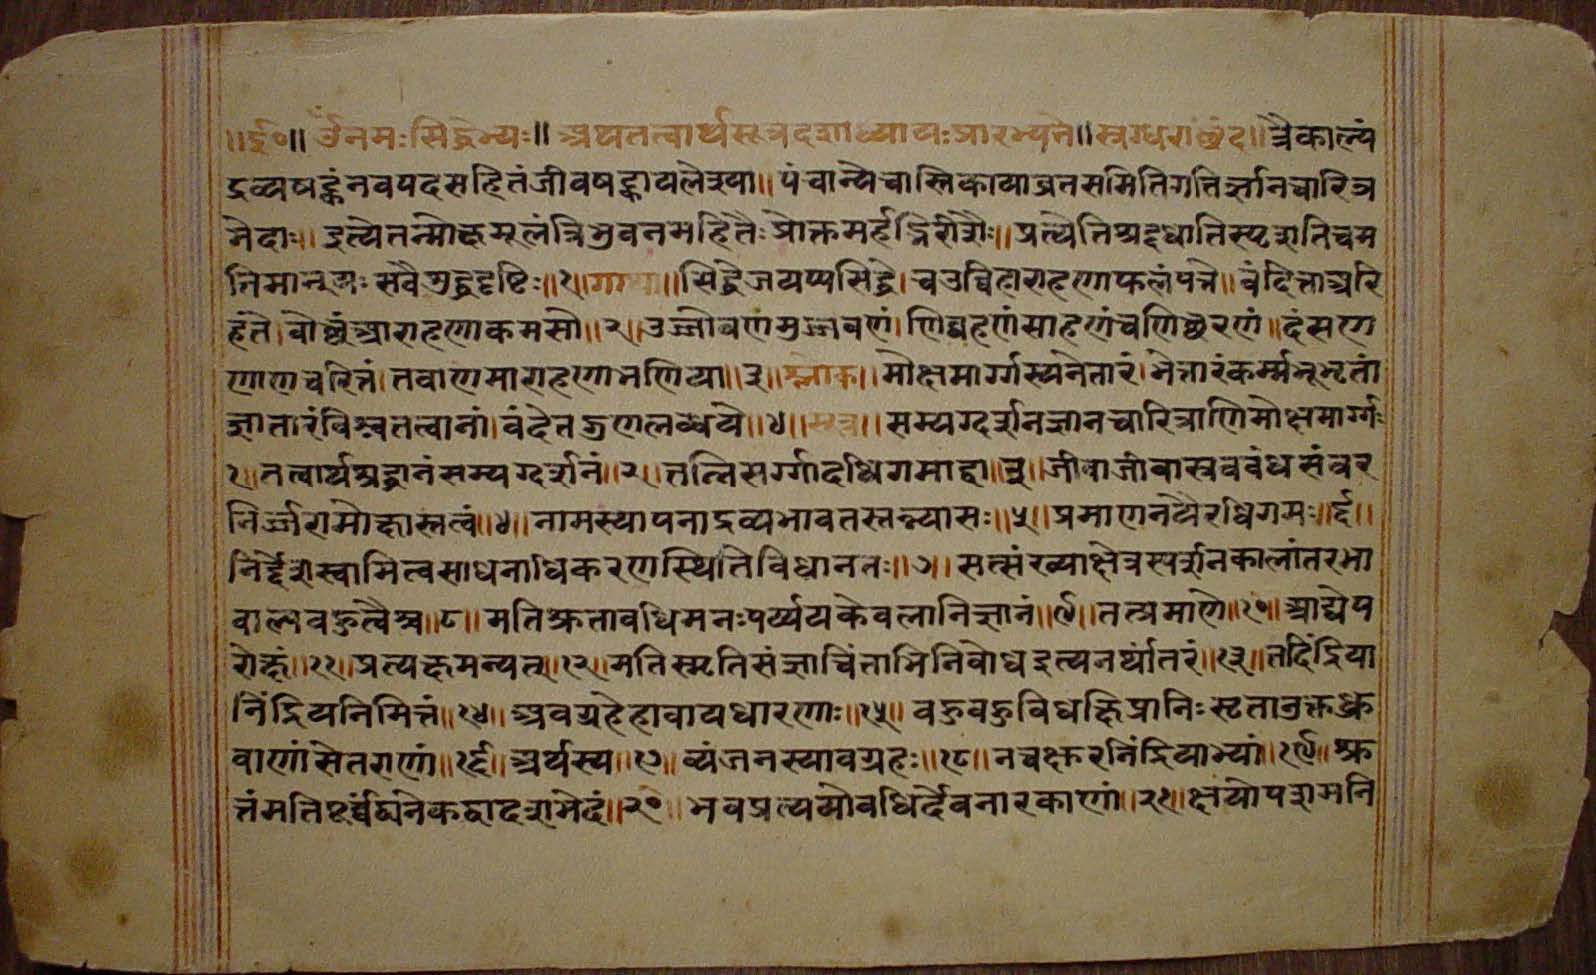 ॥ई०॥ ॐनमःसिद्धेभ्यः॥ अथतत्वार्थसूत्रदशाध्यायःप्रारभ्यते॥ स्रग्धराछंद॥ त्रैकाल्यं
द्रव्यषट्कंनवपदसहितंजीवषट्कायलेश्या॥ पंचान्येचास्तिकायाव्रतसमितिगतिर्ज्ञानचारित्र
भेदाः॥ इत्येतन्मोक्षमूलंत्रिभुवनमहितैःप्रोक्तमर्हद्भिरीशैः॥ प्रत्येतिश्रद्दधातिस्पृशतिचम
तिमान्यःसवैशुद्धदृष्टिः॥१॥गाथा॥ सिद्धेजयप्पसिद्धे।चउव्विहाराहणाफलंपत्ते॥ वंदित्ताअरि
हंते।वोछंआराहणाकमसो॥२॥उज्जोवणमुज्जवणं।णिव्वहणंसाहणंचणिछरणं॥ दंसण
णाणचरित्तं।तवाणमाराहणाभणिया॥३॥श्लोक॥ मोक्षमार्ग्गस्यनेतारं।भेत्तारंकर्म्मभूभृतां
ज्ञातारंविश्वतत्वानां।वंदेतद्गुणलब्धये॥४॥सूत्र॥ सम्यग्दर्शनज्ञानचारित्राणिमोक्षमार्ग्गः
१॥तत्वार्थश्रद्धानंसम्यग्दर्शनं॥२॥तन्निसर्ग्गादधिगमाद्वा॥३॥जीवाजीवास्रवबंधसंवर
निर्ज्जरामोक्षास्तत्वं॥४॥नामस्थापनाद्रव्यभावतस्तन्यासः॥५॥प्रमाणनयैरधिगमः॥६॥
निर्द्देशस्वामित्वसाधनाधिकरणस्थितिविधानतः॥७॥ सत्संख्याक्षेत्रस्पर्शनकालांतरभा
वाल्पबहुत्वैश्च॥८॥ मतिश्रुतावधिमनःपर्य्ययकेवलानिज्ञानं॥९॥तत्प्रमाणे॥१०॥आद्येप
रोक्षं॥११॥प्रत्यक्षमन्यत्॥१२॥मतिस्मृतिसंज्ञाचिंताभिनिबोधइत्यनर्थांतरं॥१३॥तदिंद्रिया
निंद्रियनिमित्तं॥१४॥ अवग्रहेहावायधारणाः॥१५॥ बहुबहुविधक्षिप्रानिःसृतानुक्तध्रु
वाणांसेतराणां॥१६॥अर्थस्य॥१७॥व्यंजनस्यावग्रहः॥१८॥नचक्षुरनिंद्रियाभ्यां॥१९॥श्रु
तंमतिपूर्वंद्व्यनेकद्वादशभेदं॥२०॥भवप्रत्ययोवधिर्देवनारकाणां॥२१॥क्षयोपशमनि